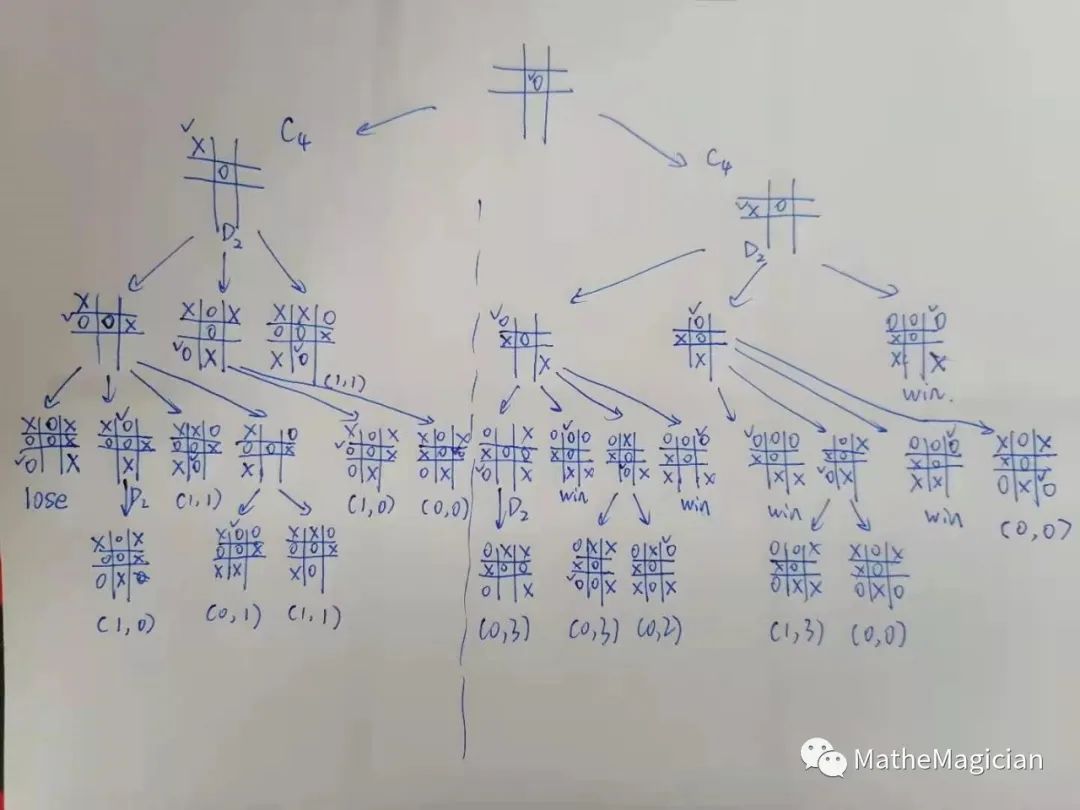 ✓O
✓
X
O
C₄
C₄
✓X O
D₂
D₂
X
✓O O X
X O X
O
✓O X
X X O
O O X
X ✓O
(1,1)
✓O
X O
X
✓O
X O
X
O O ✓O
X O
X X
win.
X O X
O O X
✓O X
lose
X ✓O
O O X
X
D₂
X X O
O O X
X O
(1,1)
X O
O O X
X
X O X
✓O O
O X
(1,0)
(0,0)
D₂
win
win
win
win
X O X
X O
O X ✓O
(0,0)
X O X
O O X
O X O
(1,0)
X ✓O O
O O X
X X
(0,1)
X X O
O O X
X O
(1,1)
O X X
X O O
O X
(0,3)
(0,3)
(0,2)
O O X
X O
O X X
(1,3)
X O X
X O
O X O
(0,0)
MatheMagician